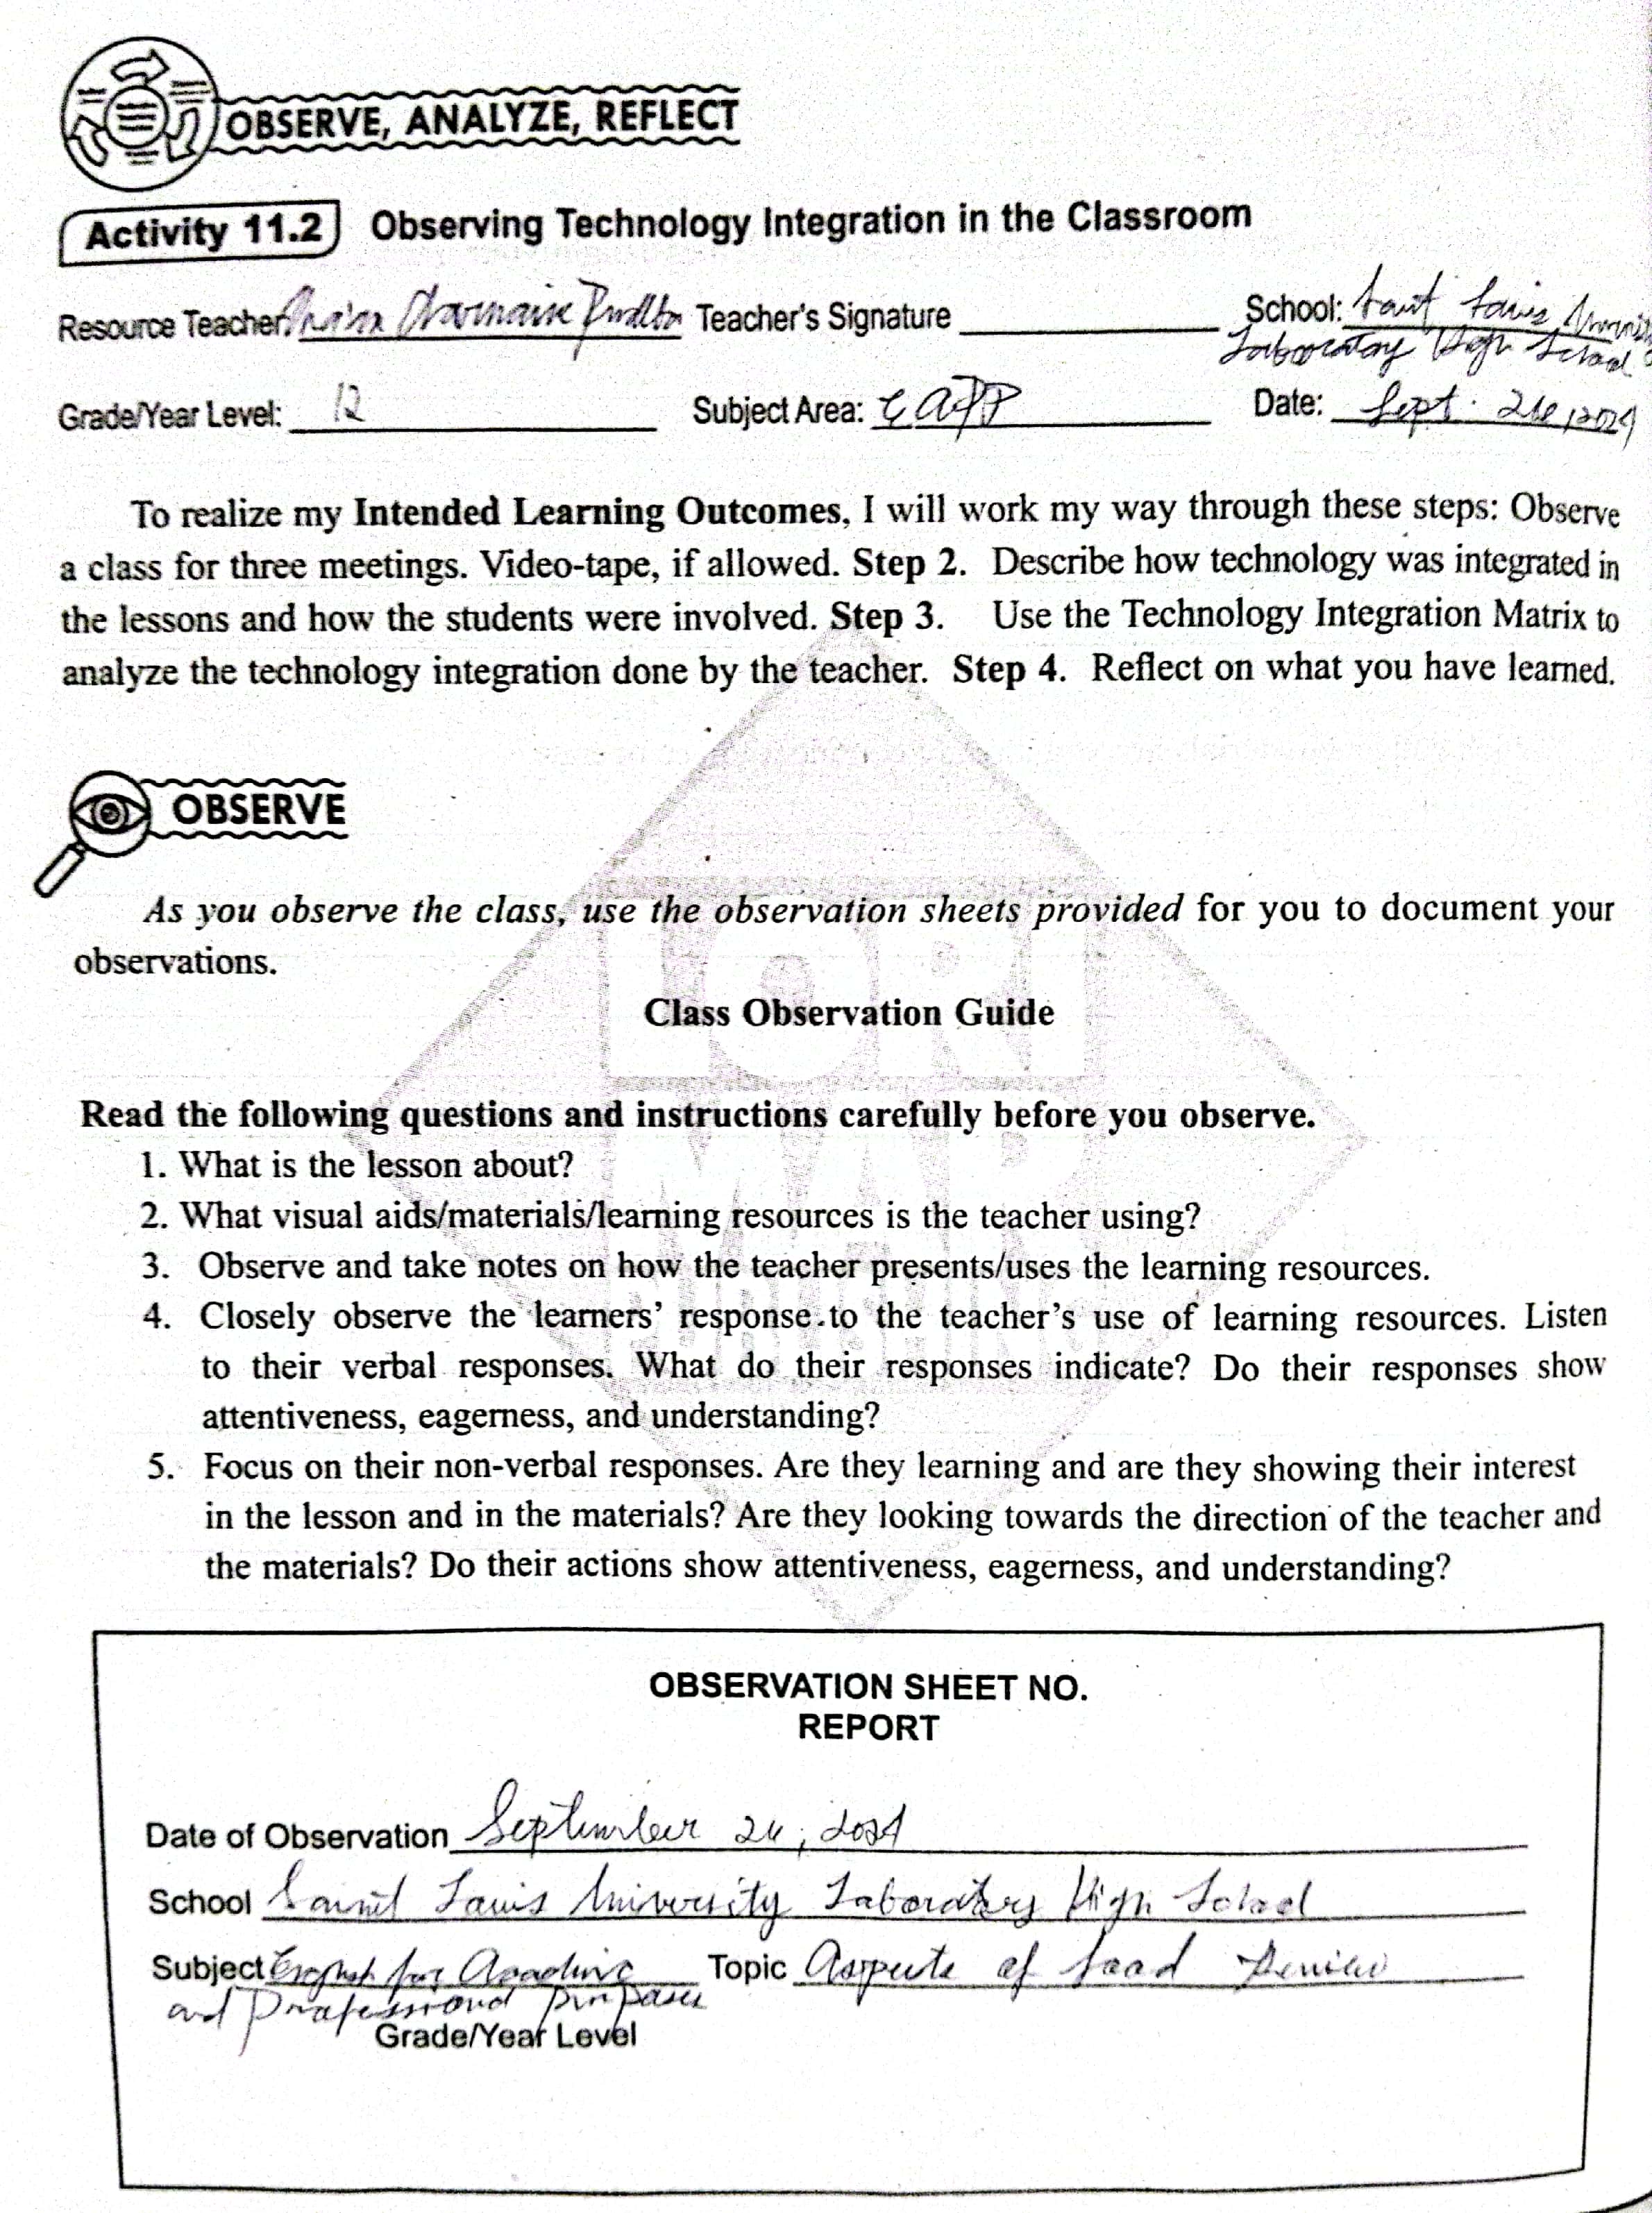 OBSERVE, ANALYZE, REFLECT
Activity 11.2 Observing Technology Integration in the Classroom
Resource Teacher: Charmaine Teacher's Signature School: Saint Louis
Laboratory High School
Grade/Year Level: 12 Subject Area: EAPP Date: Sept. 26, 2024
To realize my Intended Learning Outcomes, I will work my way through these steps: Observe
a class for three meetings. Video-tape, if allowed. Step 2. Describe how technology was integrated in
the lessons and how the students were involved. Step 3. Use the Technology Integration Matrix to
analyze the technology integration done by the teacher. Step 4. Reflect on what you have learned.
OBSERVE
As you observe the class, use the observation sheets provided for you to document your
observations.
Class Observation Guide
Read the following questions and instructions carefully before you observe.
1. What is the lesson about?
2. What visual aids/materials/learning resources is the teacher using?
3. Observe and take notes on how the teacher presents/uses the learning resources.
4. Closely observe the learners' response to the teacher's use of learning resources. Listen
to their verbal responses. What do their responses indicate? Do their responses show
attentiveness, eagerness, and understanding?
5. Focus on their non-verbal responses. Are they learning and are they showing their interest
in the lesson and in the materials? Are they looking towards the direction of the teacher and
the materials? Do their actions show attentiveness, eagerness, and understanding?
OBSERVATION SHEET NO.
REPORT
Date of Observation September 26, 2024
School Saint Louis University Laboratory High School
Subject English for Academic Topic Aspects of Food Review
and Professional purposes
Grade/Year Level